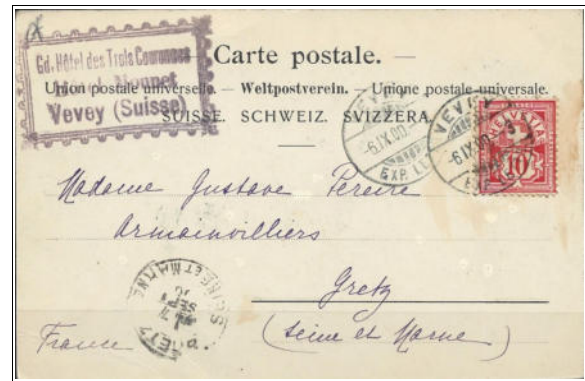 Gd. Hôtel des Trois Couronnes
Hôtel Monnet
Vevey (Suisse)
Carte postale.
Union postale universelle. – Weltpostverein. – Unione postale universale.
SUISSE. SCHWEIZ. SVIZZERA.
VEVEY
-6.IX.00.
EXP. LET.
VEVEY
-6.IX.00.-3
EXP. LET.
HELVETIA
10
Madame Gustave Pereire
Armainvilliers
Gretz
(Seine et Marne)
France
GRETZ
7
SEPT
SEINE ET MARNE